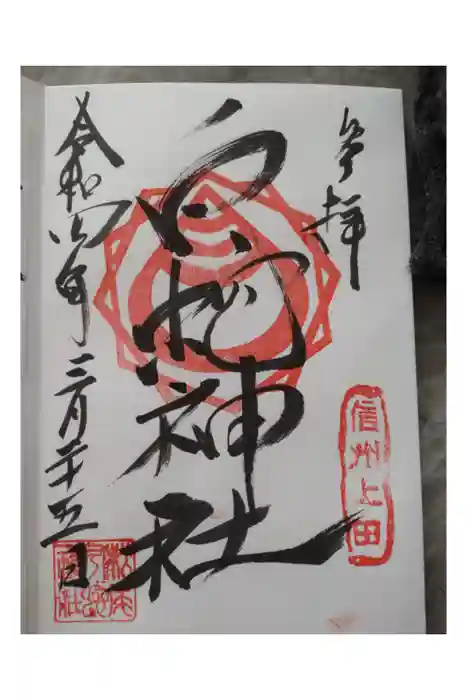 参拝
信州上田
白蛇神社
令和四年三月二十五日